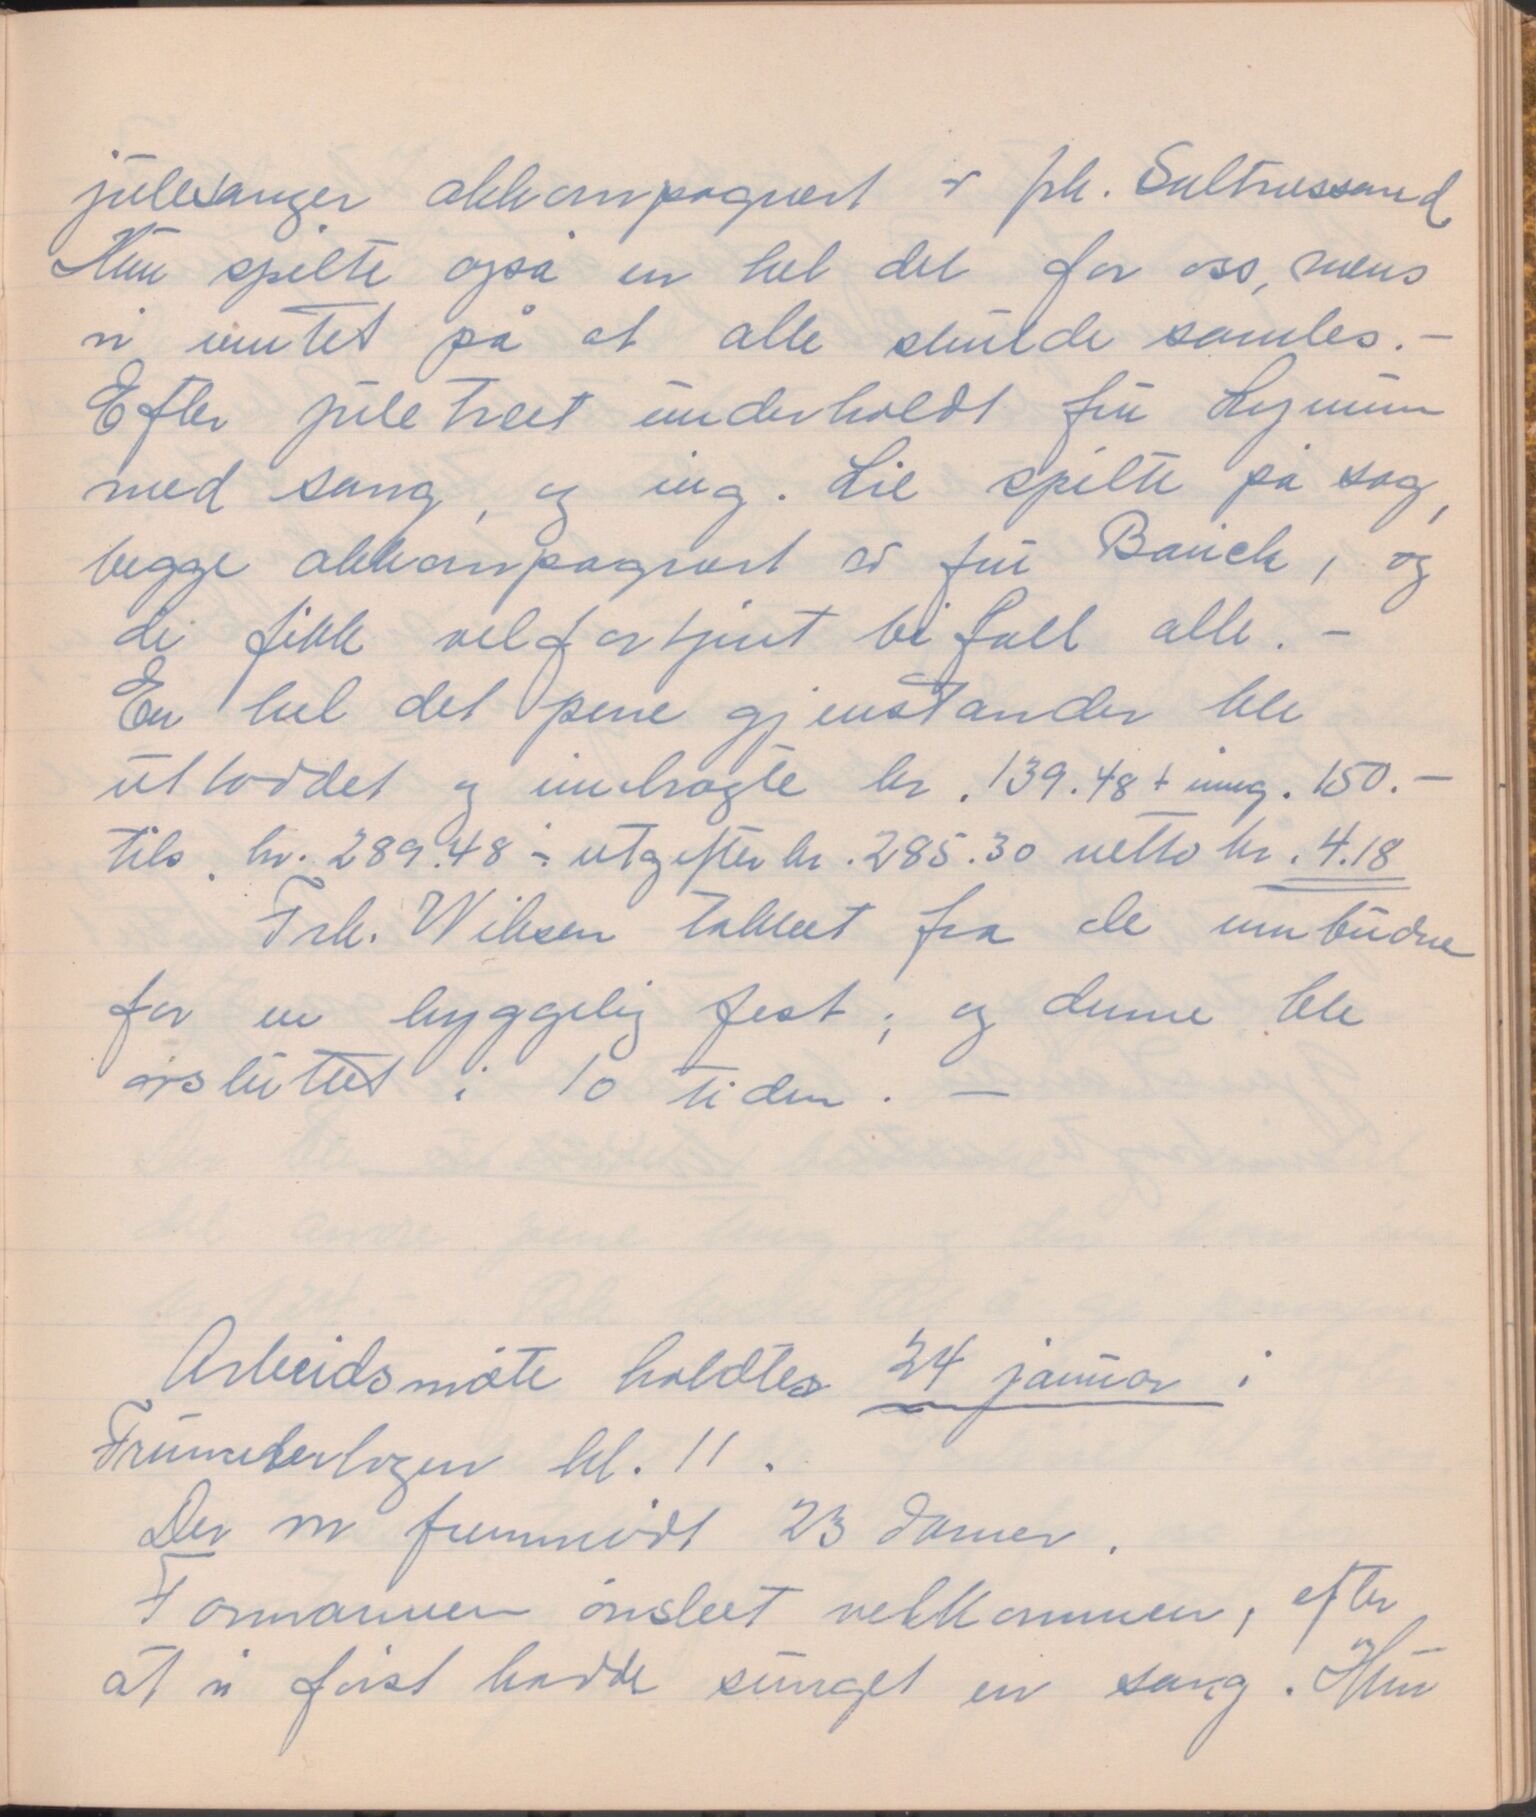 julesanger akkompagnert av frk. Sultrussand
Hun spilte også en hel del for oss, mens
vi ventet på at alle skulde samles. –
Efter juletreet underholdt fru
med sang, og ing. Lie spilte på sag,
begge akkompagnert av fru Bauck, og
de fikk velfortjent bifall alle. –
En hel del pene gjenstander ble
utloddet og innbragte kr. 139.48 + inng. 150. –
tils. kr. 289.48 ÷ utgifter kr. 285.30 netto kr. 4.18
Frk. Wilsen takket fra de innbudne
for en hyggelig fest; og denne ble
avsluttet i 10 tiden. –
Arbeidsmøte holdtes 24 januar i
Frimurerlogen kl. 11.
Der var fremmødt 23 damer.
Formannen ønsket velkommen, efter
at vi først hadde sunget en sang. Hun